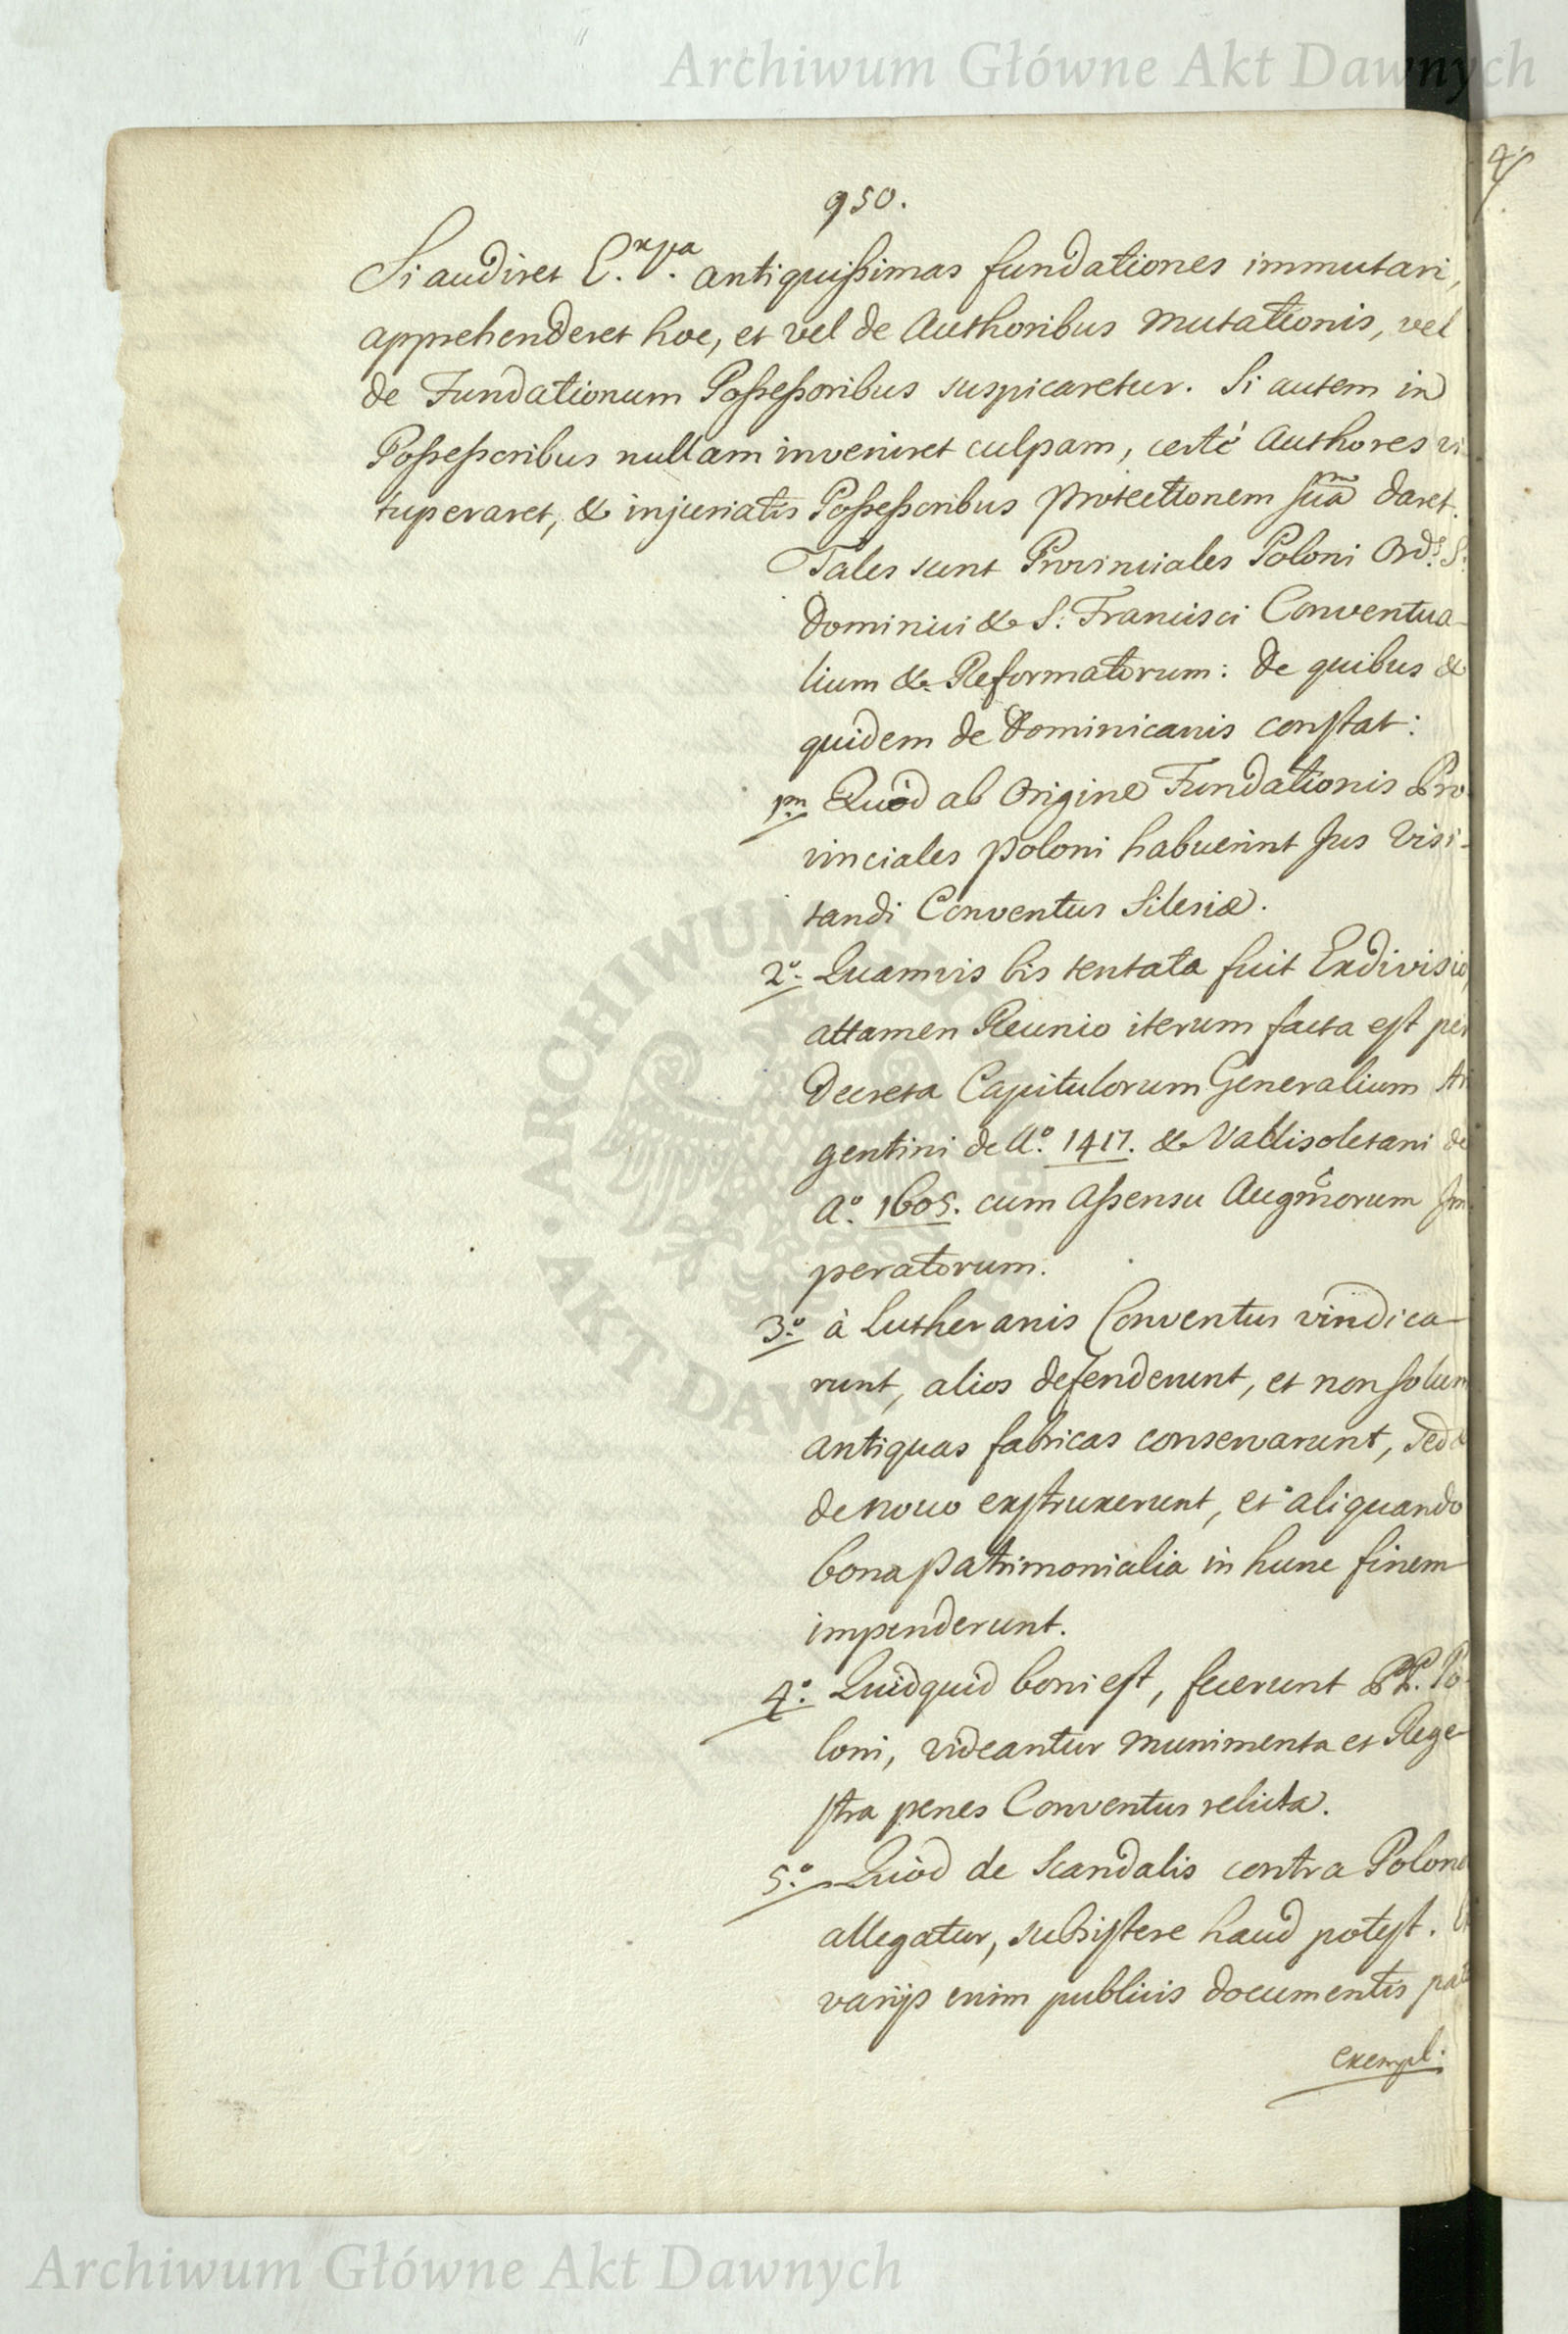 Archiwum Główne Akt Dawnych
950.
Si audiret E.xpa antiquissimas fundationes immutari,
apprehenderet hoc, et vel de Authoribus mutationis, vel
de Fundationum Possessoribus suspicaretur. Si autem in
Possessoribus nullam inveniret culpam, certè Authores vi
tuperaret, & injuriatis Possessoribus protectionem suam daret.
Tales sunt Provinciales Poloni Ord.s S.
Dominici & S. Francisci Conventua-
lium & Reformatorum: de quibus &
quidem de Dominicanis constat:
1m Quòd ab origine Fundationis Pro
vinciales Poloni habuerint Jus Visi-
tandi Conventus Silesiæ.
2o. Quamvis bis tentata fuit Exdivisio,
attamen Reunio iterum facta est per
Decreta Capitulorum Generalium Ar
gentini de Ao. 1417. & Vallisoletani de
Ao. 1605. cum assensu Augmorum Im
peratorum.
3o. à Lutheranis Conventus vindica-
runt, alios defenderunt, et non solum
antiquas fabricas conservarunt, sed &
de novo exstruxerunt, et aliquando
bona patrimonialia in hunc finem
impenderunt.
4o. Quidquid boni est, fecerunt PP. Po
loni, videantur munimenta et Rege-
stra penes Conventus relicta.
5o. Quòd de Scandalis contra Polono
allegatur, subsistere haud potest.
varijs enim publicis documentis pat
exempl:
ARCHIWUM GŁÓWNE
AKT DAWNYCH
Archiwum Główne Akt Dawnych